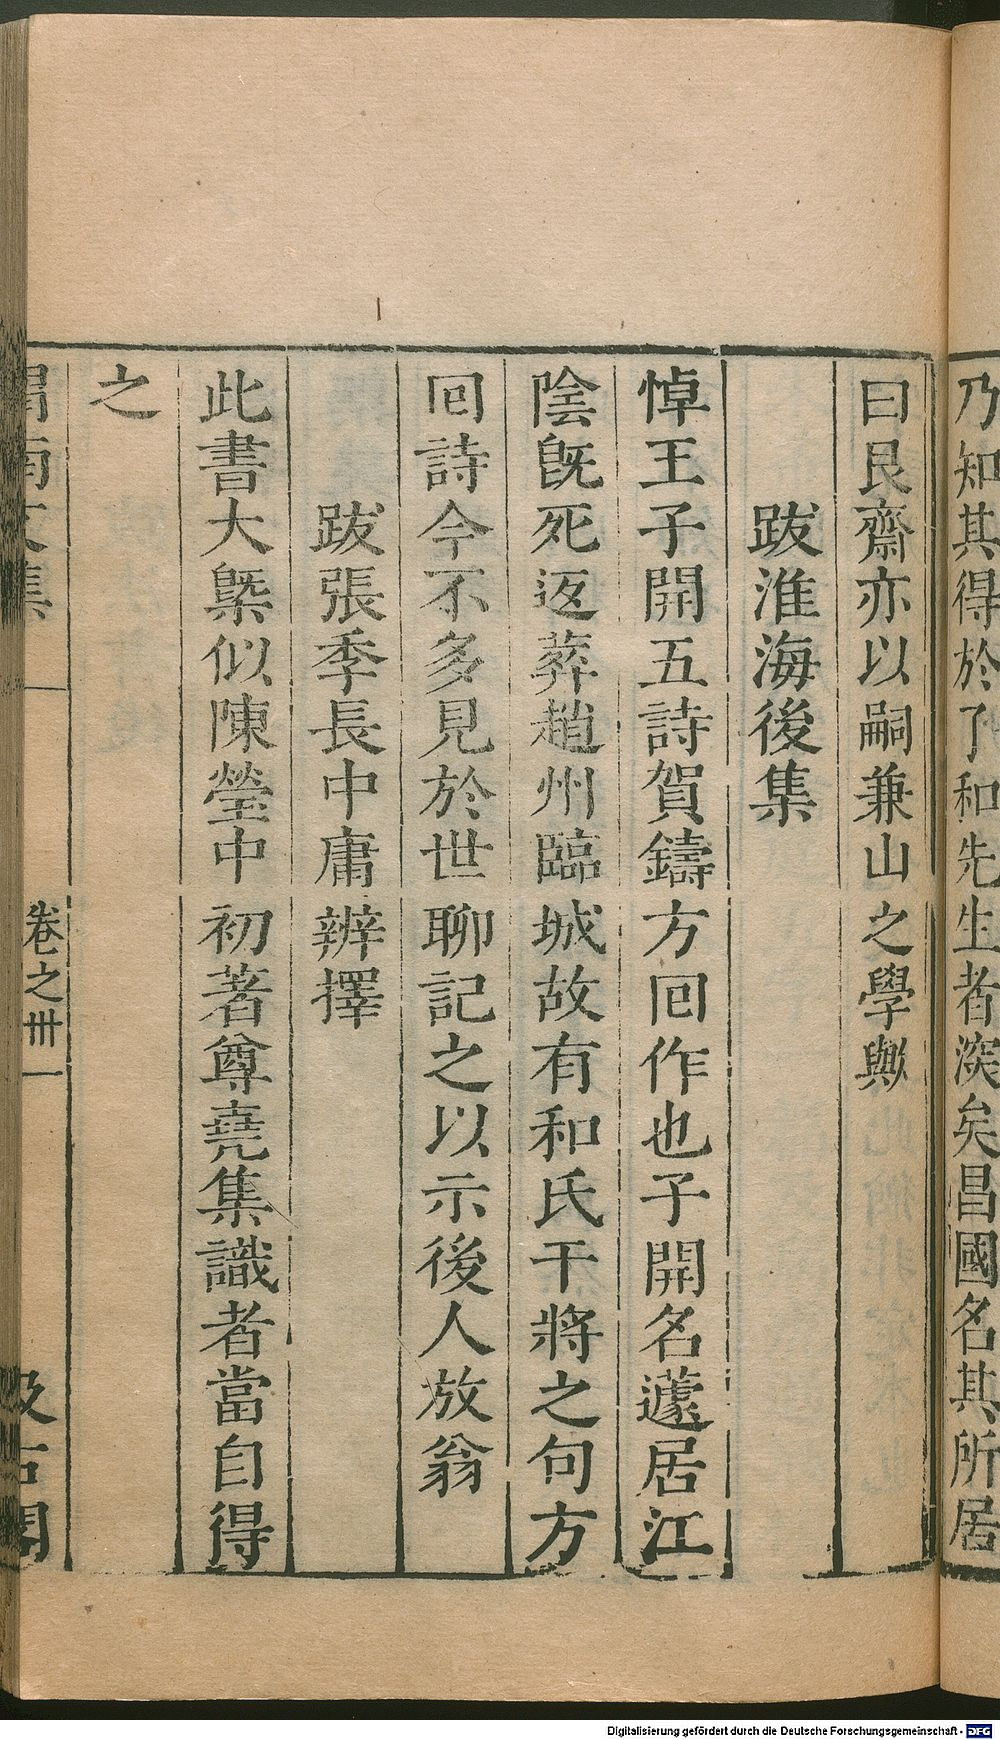 乃知其得於了和先生者深矣昌國名其所居
曰艮齋亦以嗣兼山之學歟
跋淮海後集
悼王子開五詩賀鑄方回作也子開名蘧居江
陰旣死返葬趙州臨城故有和氏干將之句方
回詩今不多見於世聊記之以示後人放翁
跋張季長中庸辨擇
此書大槩似陳瑩中初著尊堯集識者當自得
之
渭南文集 卷之卅一 汲古閣
Digitalisierung gefördert durch die Deutsche Forschungsgemeinschaft - DFG